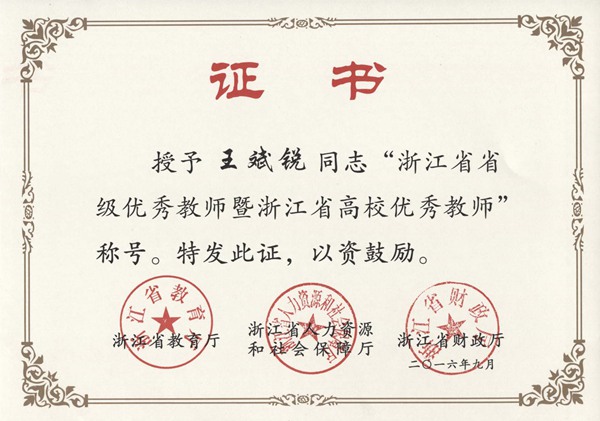 证 书
授予 王斌锐 同志“浙江省省
级优秀教师暨浙江省高校优秀教师”
称号。特发此证，以资鼓励。
浙江省教育厅
浙江省教育厅
浙江省人力资源和社会保障厅
浙江省人力资源
和社会保障厅
浙江省财政厅
浙江省财政厅
二〇一六年九月